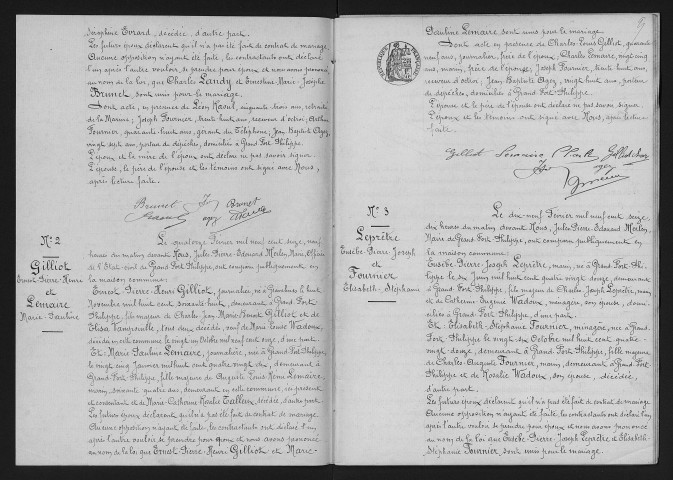 Séraphine Evrard, décédée, d'autre part.
Les futurs époux déclarent qu'il n'a pas été fait de contrat de mariage.
Aucune opposition n'ayant été faite, les contractants ont déclaré
l'un après l'autre vouloir se prendre pour époux et nous avons prononcé
au nom de la loi, que Charles Landry et Ernestine Marie Josèphe
Brunet sont unis pour le mariage.
Dont acte, en présence de Léon Raoul, cinquante trois ans, retraité
de la Marine; Joseph Fournier, trente huit ans, receveur d'octroi; Arthur
Fournier, quarante-huit ans, gérant du Téléphone; Jean Baptiste Agez,
vingt sept ans, porteur de dépêches, domiciliés à Grand Fort Philippe.
L'époux et la mère de l'époux ont déclaré ne pas savoir signer.
L'épouse, le père de l'épouse et les témoins ont signé avec Nous,
après lecture faite.
Brunet Brunet
Raoul agez
N° 2
Gilliot
Ernest-Pierre-Henri
et
Lemaire
Marie-Pauline
Le quatorze Février mil neuf cent seize, neuf
heures du matin, devant Nous, Jules-Pierre-Edouard Merlen, Maire, Officier
de l'Etat-civil de Grand Fort Philippe, ont comparu publiquement en
la maison commune:
Ernest Pierre-Henri Gilliot, journalier, né à Gravelines le huit
Novembre mil huit cent soixante huit, demeurant à Grand Fort
Philippe, fils majeur de Charles Jean Marie Benoit Gilliot et de
Elisa, tous deux décédés, veuf de Marie Eudoxie Wadoux,
décédée en cette commune le vingt un Octobre mil neuf cent seize, d'une part.
Et Marie Pauline Lemaire, journalière, née à Grand Fort Philippe,
le vingt cinq Janvier mil huit cent quatre vingt six, demeurant à
Grand-Fort-Philippe, fille majeure de Auguste Louis Rémi Lemaire,
marin, soixante quatre ans, demeurant en cette commune, ici présent
et consentant et de Marie-Catherine Rosalie Tailleu, décédée, d'autre part.
Les futurs époux déclarent qu'il n'a pas été fait de contrat de mariage.
Aucune opposition n'ayant été faite, les contractants ont déclaré l'un
après l'autre vouloir se prendre pour époux et nous avons prononcé
au nom de la loi que Ernest Pierre-Henri Gilliot et Marie-
Pauline Lemaire sont unis pour le mariage.
Dont acte en présence de Charles-Louis Gilliot, quarante
neuf ans, journalier, frère de l'époux; Charles Lemaire, vingt cinq
ans, marin, frère de l'épouse; Joseph Fournier, trente huit ans,
receveur d'octroi; Jean Baptiste Agez, vingt huit ans, porteur
de dépêches, domiciliés à Grand Fort Philippe.
L'épouse et le père de l'épouse ont déclaré ne pas savoir signer.
L'époux et les témoins ont signé avec Nous, après lecture
faite.
Gilliot Gilliot
agez
N° 3
Leprêtre
Eusèbe-Pierre-Joseph
et
Fournier
Elisabeth-Stéphanie
Le dix-neuf Février mil neuf cent seize,
dix heures du matin, devant Nous, Jules-Pierre-Edouard Merlen,
Maire de Grand Fort Philippe, ont comparu publiquement en
la maison commune:
Eusèbe-Pierre-Joseph Leprêtre, marin, né à Grand Fort Phi-
lippe le six Juin mil huit cent quatre vingt douze, demeurant
à Grand Fort Philippe, fils majeur de Charles Joseph Leprêtre, marin
et de Catherine Eugénie Wadoux, ménagère, son épouse, domi-
ciliés à Grand Fort Philippe, d'une part.
Et Elisabeth-Stéphanie Fournier, ménagère, née à Grand
Fort Philippe le vingt-six Octobre mil huit cent quatre-
vingt-douze, demeurant à Grand Fort Philippe, fille majeure
de Charles-Auguste Fournier, marin, demeurant à Grand Fort
Philippe et de Rosalie Wadoux, son épouse, décédée,
d'autre part.
Les futurs époux déclarent qu'il n'a pas été fait de contrat de mariage.
Aucune opposition n'ayant été faite, les contractants ont déclaré l'un
après l'autre vouloir se prendre pour époux et nous avons prononcé
au nom de la loi que Eusèbe-Pierre-Joseph Leprêtre et Elisabeth-
Stéphanie Fournier, sont unis pour le mariage.